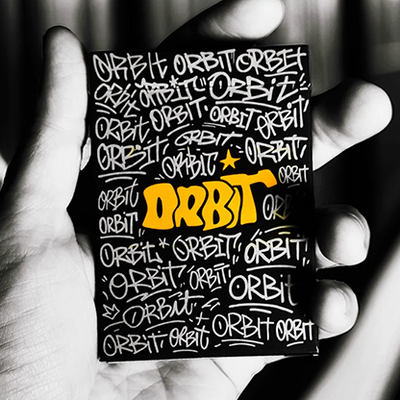 ORBIT ORBIT ORBIT
ORBIT ORBIT ORBIT
ORBIT ORBIT ORBIT ORBIT
ORBIT
ORBIT ORBIT ORBIT
ORBIT
ORBIT ORBIT
ORBIT
ORBIT
ORBIT ORBIT ORBIT
ORBIT ORBIT ORBIT
ORBIT
ORBIT ORBIT ORBIT ORBIT